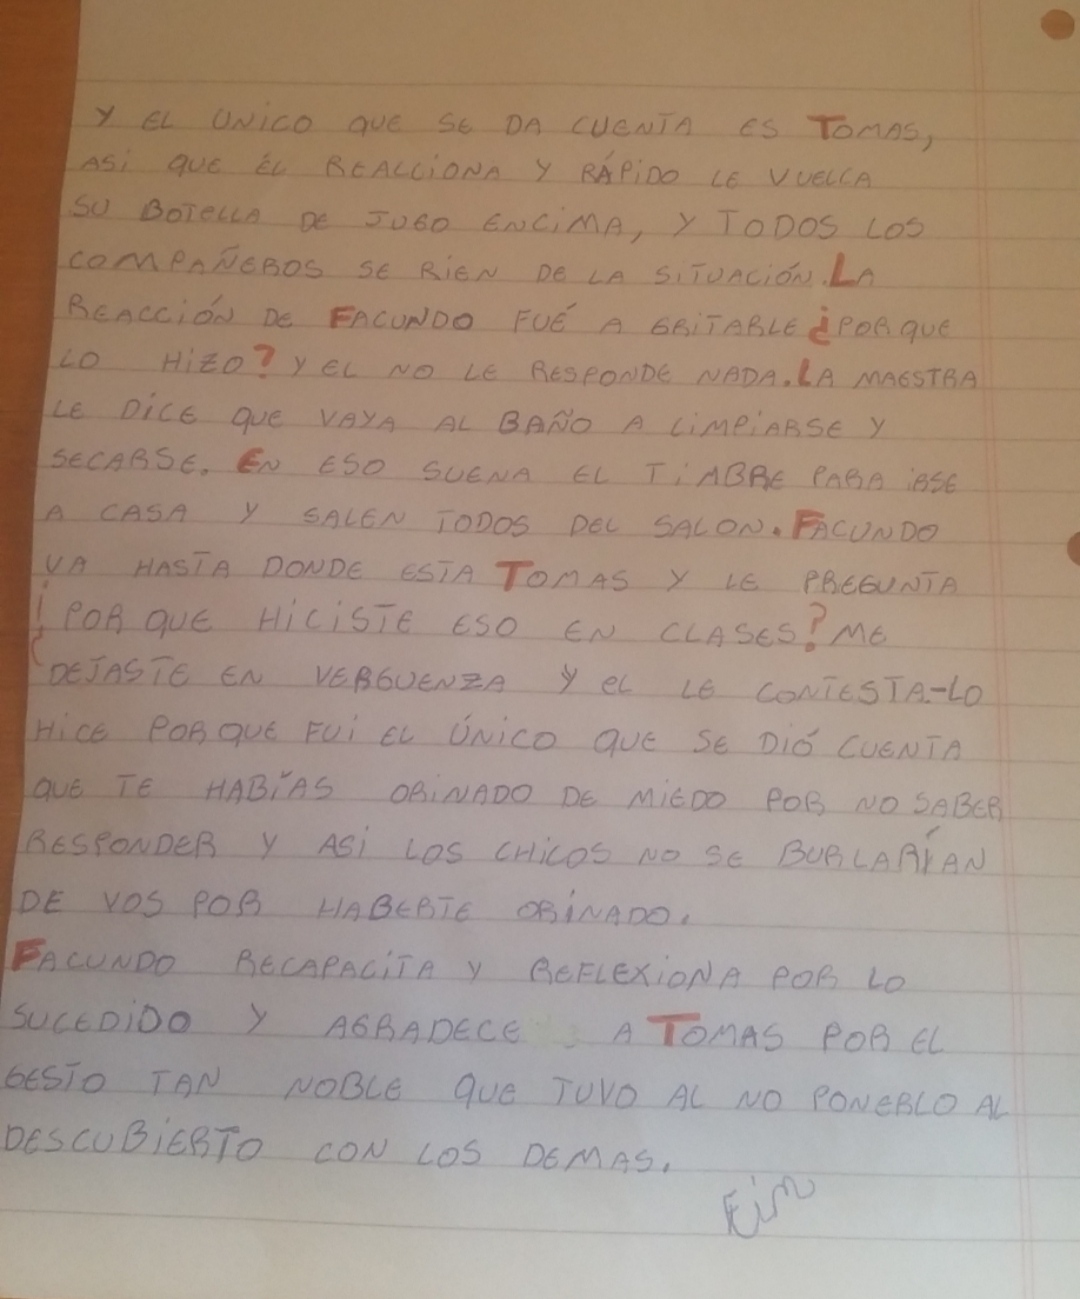 Y EL UNICO QUE SE DA CUENTA ES TOMAS,
ASI QUE ÉL REACCIONA Y RÁPIDO LE VUELCA
SU BOTELLA DE JUGO ENCIMA, Y TODOS LOS
COMPAÑEROS SE RIEN DE LA SITUACIÓN. LA
REACCIÓN DE FACUNDO FUÉ A GRITARLE ¿POR QUE
LO HIZO? Y EL NO LE RESPONDE NADA. LA MAESTRA
LE DICE QUE VAYA AL BAÑO A LIMPIARSE Y
SECARSE. EN ESO SUENA EL TIMBRE PARA IRSE
A CASA Y SALEN TODOS DEL SALON. FACUNDO
VA HASTA DONDE ESTA TOMAS Y LE PREGUNTA
¿POR QUE HICISTE ESO EN CLASES? ME
DEJASTE EN VERGUENZA Y EL LE CONTESTA.-LO
HICE POR QUE FUI EL ÚNICO QUE SE DIÓ CUENTA
QUE TE HABÍAS ORINADO DE MIEDO POR NO SABER
RESPONDER Y ASI LOS CHICOS NO SE BURLARÍAN
DE VOS POR HABERTE ORINADO.
FACUNDO RECAPACITA Y REFLEXIONA POR LO
SUCEDIDO Y AGRADECE A TOMAS POR EL
GESTO TAN NOBLE QUE TUVO AL NO PONERLO AL
DESCUBIERTO CON LOS DEMAS.
Fin